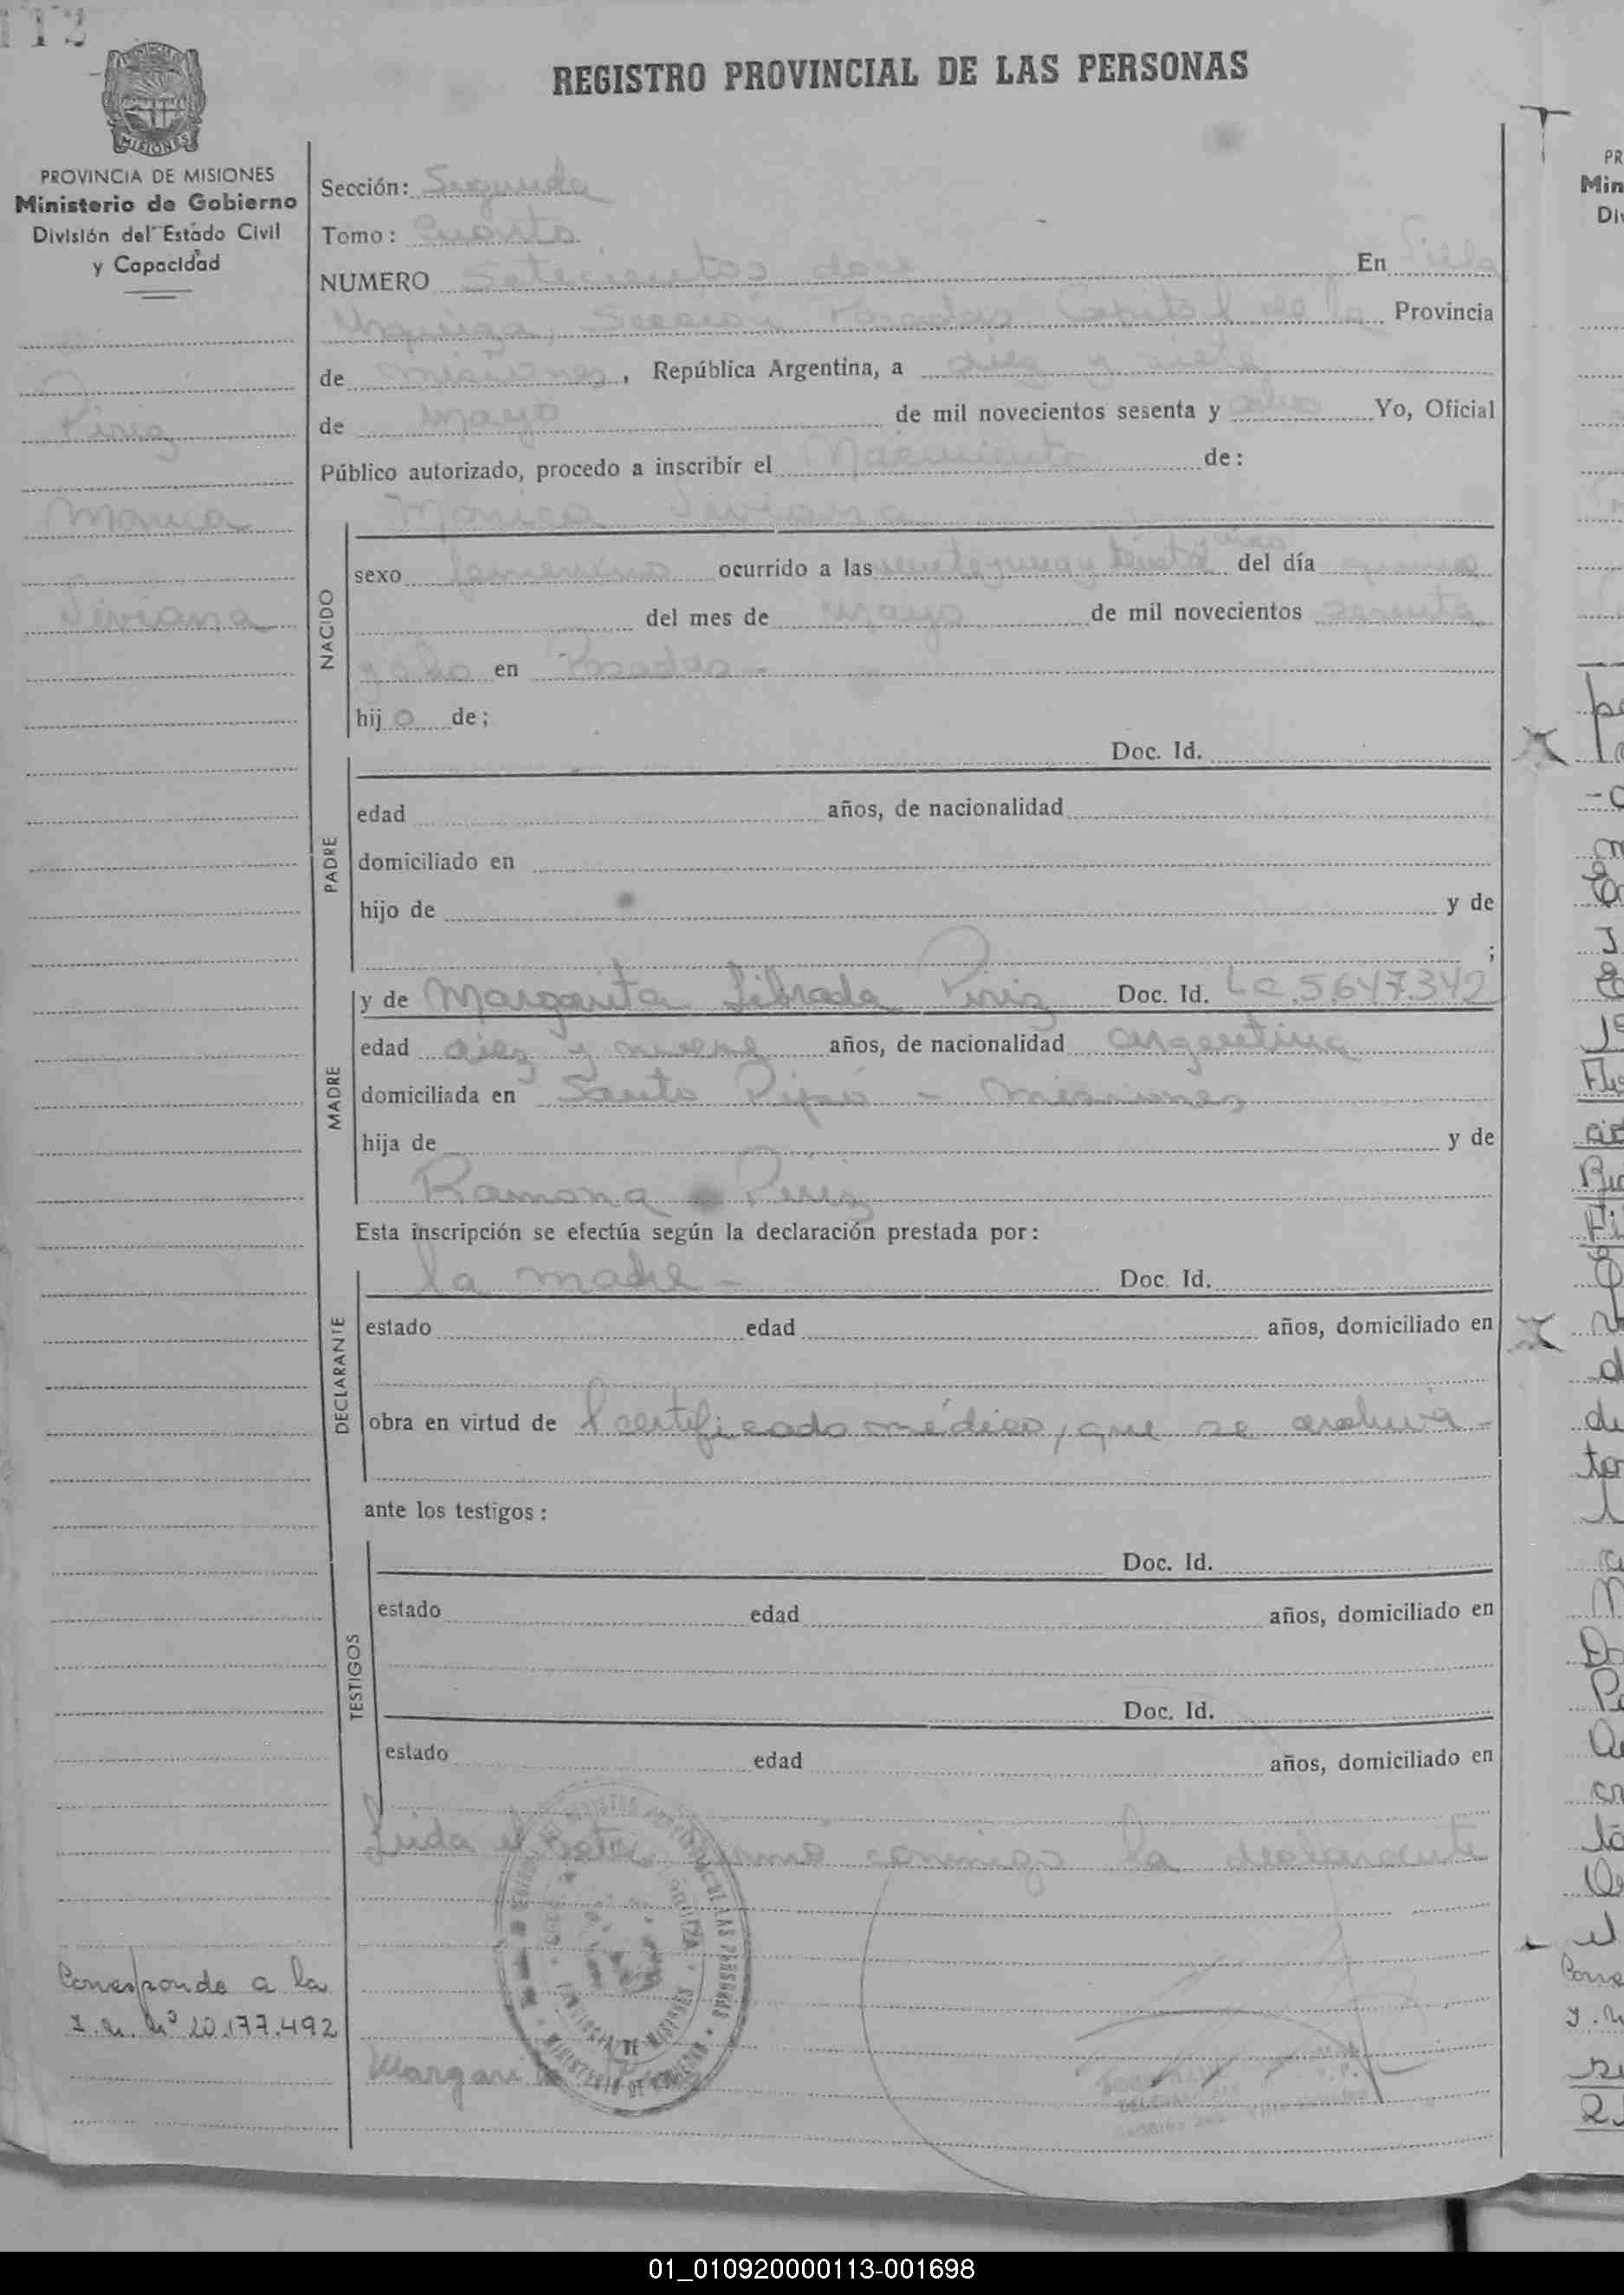 112
REGISTRO PROVINCIAL DE LAS PERSONAS
MISIONES
PROVINCIA DE MISIONES
Ministerio de Gobierno
División del Estado Civil
y Capacidad
Piriz
Monica
Viviana
Corresponde a la
I.M. Nº 20.177.492
Sección: Segunda
Tomo: Cuarto
NUMERO Setecientos doce En Villa
Urquiza, Sección Posadas Capital de la Provincia
de Misiones, República Argentina, a diez y siete
de Mayo de mil novecientos sesenta y ocho Yo, Oficial
Público autorizado, procedo a inscribir el Nacimiento de:
Monica Viviana
NACIDO
sexo femenino ocurrido a las del día quince
del mes de mayo de mil novecientos sesenta
y ocho en Posadas -
hijo de;
PADRE
Doc. Id.
edad años, de nacionalidad
domiciliado en
hijo de y de
;
MADRE
y de Margarita Librada Piriz Doc. Id. LC.5.647.342
edad diez y nueve años, de nacionalidad argentina
domiciliada en Santo Pipó - Misiones
hija de y de
Ramona Piriz
Esta inscripción se efectúa según la declaración prestada por:
DECLARANTE
la madre - Doc. Id.
estado edad años, domiciliado en
obra en virtud de certificado médico, que se archiva -
ante los testigos:
TESTIGOS
Doc. Id.
estado edad años, domiciliado en
Doc. Id.
estado edad años, domiciliado en
Leida el acta, firmó conmigo la declarante
MINISTERIO DE GOBIERNO
PROVINCIA DE MISIONES
01_010920000113-001698